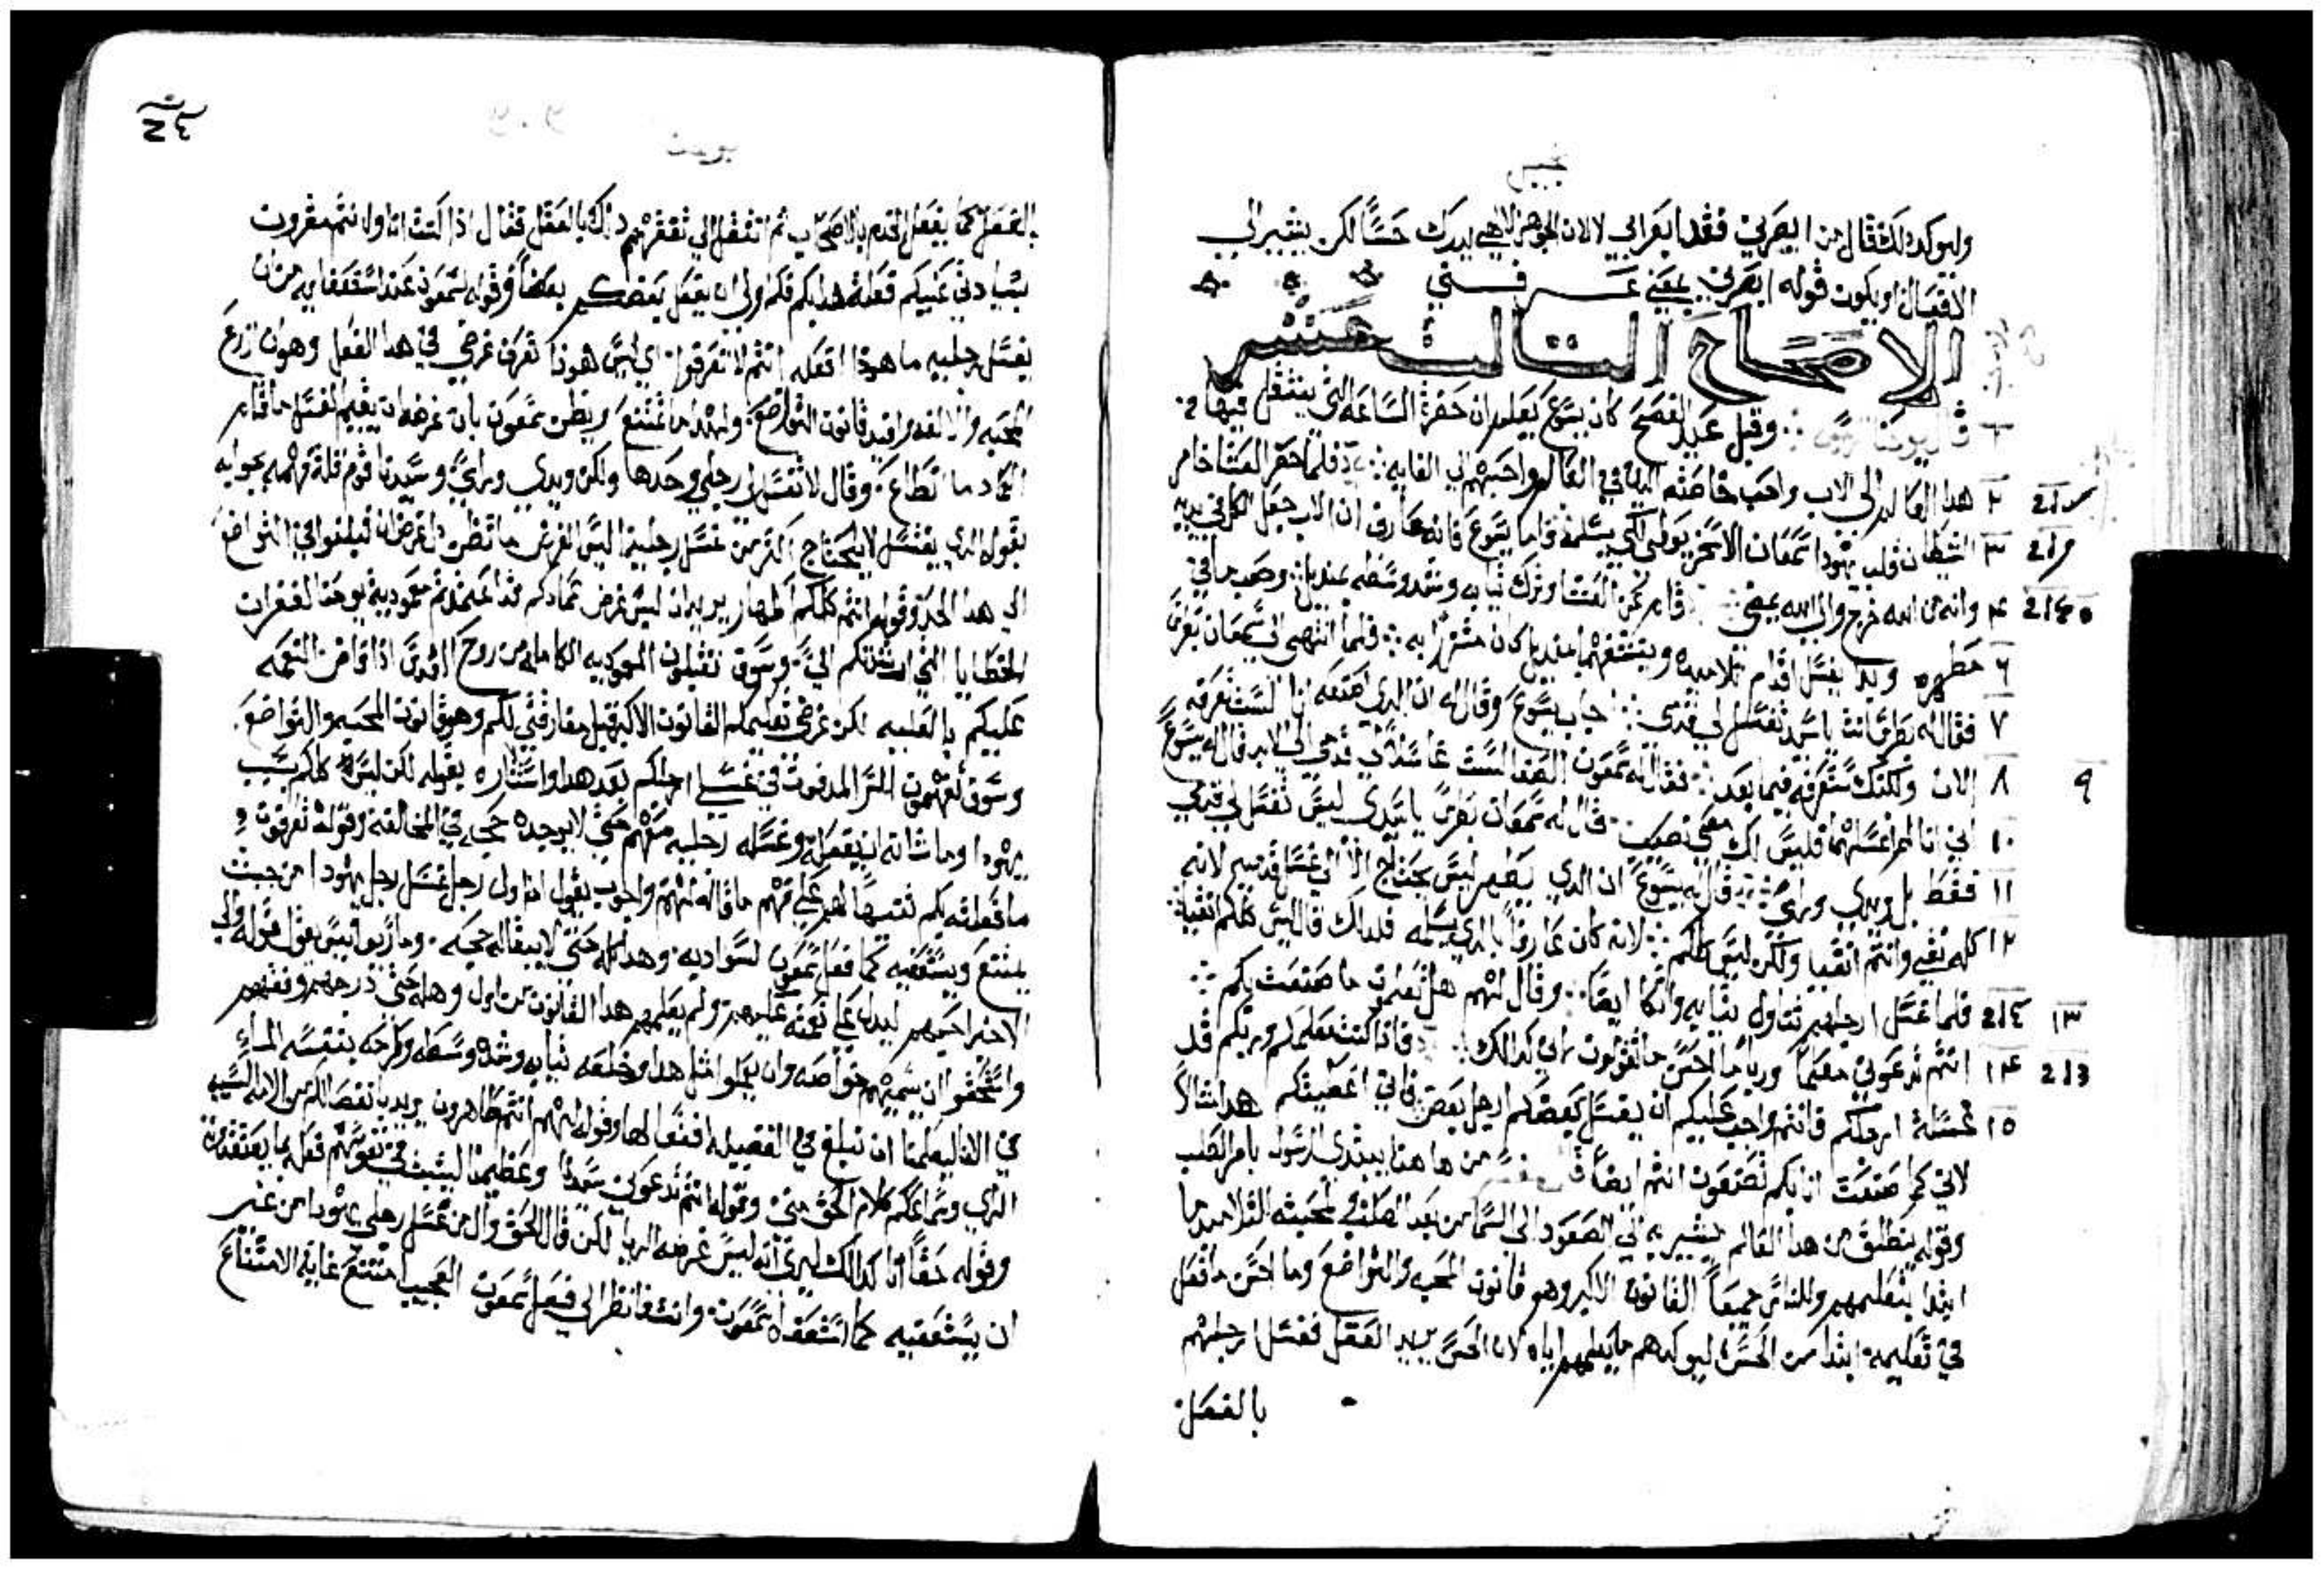 انجيل
وليوكد ذلك قال من ابصرني فقد ابصر ابي لا لان الجوهر الالاهي يدرك حسًا لكن يشير الي
الافعال او يكون قوله ابصرني بمعني عرفني
الاصحاح التالت عشر
١ قال يوحنا وقبل عيد الفصح كان يسوع يعلم ان حضرة الساعه التي ينتقل فيها من
٢ هدا العالم الي الاب واحب خاصته الدين في العالم واحبهم الي الغايه فلما حضر العشا خامر
٣ الشيطان قلب يهودا سمعان الاسخريوطي لكي يسلمه فاما يسوع فانه عارف ان الاب جعل الكل في يديه
٤ وانه من الله خرج والي الله يمضي قام عن العشا وترك ثيابه وشد وسطه بمنديل وصب ما في
٦ مطهره وبدا يغسل اقدام تلاميده وينشفهما بمنديل كان متزرًا به فلما انتهي الي سمعان بطرس
٧ فقال له بطرس انت يا سيد تغسل لي قدمي اجاب يسوع وقال له ان الدي اصنعه انا لست تعرفه
٩ ٨ الان ولكنك ستعرفه فيما بعد فقال له سمعون الصفا لست غاسلًا لي قدمي الي الابد قال له يسوع
١٠ اني انا ان لم اغسلهما فليس لك معي نصيب قال له سمعان بطرس يا سيدي ليس تغسل لي قدمي
١١ فقط بل ويدي وراسي قال له يسوع ان الدي يطهر ليس يحتاج الا الي غسل قدميه لانه
١٢ كله نقي وانتم انقيا ولكن ليس كلكم لانه كان عارفًا بالدي يسلمه فلدلك قال ليس كلكم انقيا
١٣ فلما غسل ارجلهم تناول ثيابه واتكا ايضًا وقال لهم هل تعلمون ما صنعت بكم
١٤ انتم تدعوني معلمًا وربًا ما احسن ما تقولون اني كدالك فاذا كنت معلمكم وربكم قد
١٥ غسلة ارجلكم فانتم واجب عليكم ان يغسل بعضكم ارجل بعض فاني اعطيتكم هدا مثالًا
لاني كما صنعت انا بكم تصنعون انتم ايضًا من هاهنا يبتدي الرسول بامر الصلب
وقوله ينطلق من هدا العالم يشير به الي الصعود الي السما من بعد الصلب ومحبته التلاميد ما
ابتدا بتعليمهم وللناس جميعًا القانون الاكبر وهو قانون المحبه والتواضع وما احسن ما فعل
في تعليمه ابتدا من الحس ليوكد هم ما يعلمهم اياه لان الحس يريد العقل فغسل ارجلهم
بالفعل
يوحنا
بالفعل كما يفعل الخدم بالاصحاب ثم انتقل الي تفهيمهم دلك بالعقل فقال اذا كنت انا وانتم مقرون
بسيادتي عليكم فعلة هدا بكم فكم اولي ان يفعل بعضكم بعضًا وقوله لسمعون عند استعفايه من ان
يغسل رجليه ما هودا افعله انتم لا تعرفوا اي ليس هودا تعرف غرضي في هدا الفعل وهو ان ازرع
المحبه والالفه وافيد قانون التواضع ولهدا ما امتنع ويظن سمعون بان غرضه ان يقيم الغسل مقام
العماد ما نطاع وقال لا تغسل لي رجلي وحدها ولكن ويدي وراسي وسيدنا قوم قلة فهمه بجوابه
بقوله الدي يغتسل لا يحتاج اكتر من غسل رجليه ليس الغرض ما تظن بل غرضي ان تبلغوا في التواضع
الي هدا الحد وقوله انتم كلكم اطهار يريد ان ليس غرضي عمادكم قد اعتمدتم معموديه يوحنا لغفران
الخطايا التي ارشدتكم الي وسوف تقبلون المعموديه الكامله من روح القدس اذا فاض النعمه
عليكم بالعليه لكن غرضي تعليمكم القانون الاكبر قبل مفارقتي لكم وهو قانون المحبه والتواضع
وسوف تفهمون السر المدفون في غسلي ارجلكم بعد هدا واستثناره بقوله لكن ليس كلكم بسبب
يهودا وما شانه ان يفعله وغسله رجليه معهم حتي لا يوجده حجه في المخالفه وقوله تعرفون
ما فعلته بكم تنبيهًا لهم علي فهم ما قاله لهم واجب يقول ان اول رجل غسل رجل يهودا من حيث
يمتنع ويستعفيه كما فعل سمعون لسواديه وهدا كله حتي لا يبقا له حجه
الاخر احبهم ليدل علي نعمته عليهم ولم يعلمهم هدا القانون من اول وهله حتي درجهم وفهمهم
واستحقوا ان يسميهم خواصه وان يعملوا مثل هدا وخلعه ثيابه وشده وسطه وطرحه بنفسه الماء
في الانا ليعلمنا ان نبلغ في الفضيله اقصاها وقوله لهم انتم طاهرون يريد بانفصالكم من الامه
الردي وسماعكم كلام الحق مني وقوله انتم تدعوني سيدًا وعظيمًا ليثبت في نفوسهم فعله بما يعتقدونه
وقوله حقًا انا كدالك ليري انه ليس غرضه الريا لكن قال الحق وال من غسل رجلي يهودا من غير
ان يستعفيه كما استعفاه سمعون وانت فانظر الي فعل سمعون العجيب امتنع غاية الامتناع